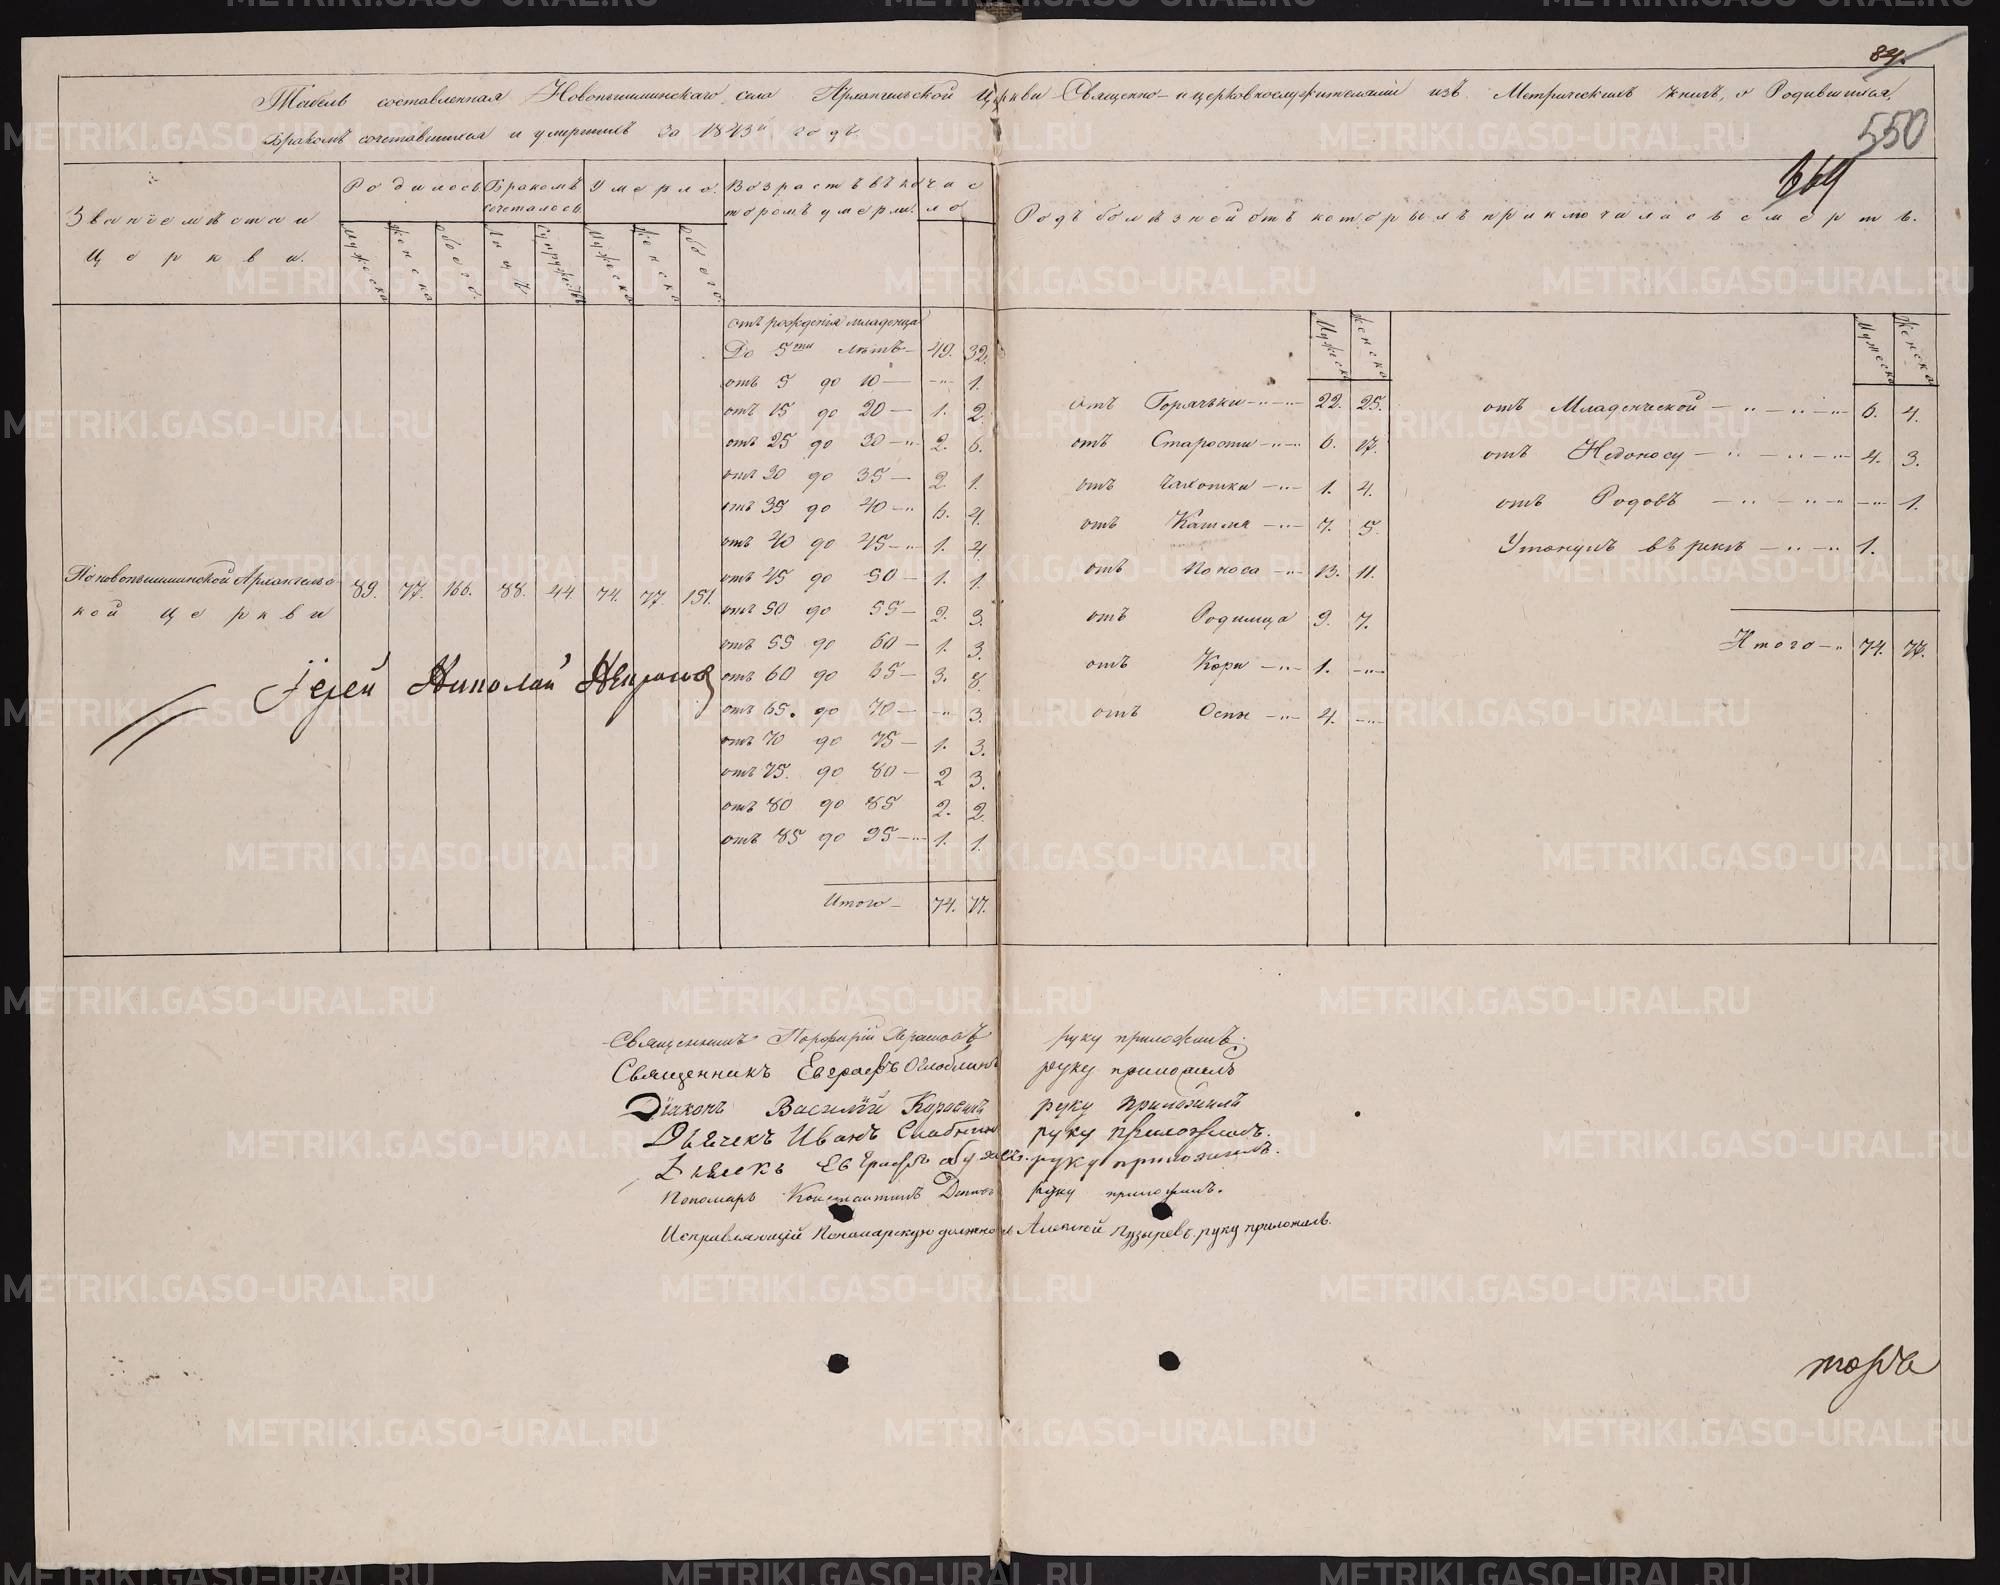 84.
Табель составленная Новопышминскаго села Архангельской Церкви Священно-и церковнослужителями изъ Метрическихъ книгъ, о Родившихся,
Бракомъ сочетавшихся и умершихъ за 1843й годъ
550
369
Званіе мѣста и
Церкви.
Родилось.
Бракомъ
сочеталось
Умерло.
Возрастъ въ ко
торомъ умерли.
Чис
ло
Родъ болѣзней отъ которыхъ приключилась смерть.
Мужеска
Женска
обоего.
Лицъ
супружествъ
Мужеска
Женска
обоего.
Мужеска
Женска
Мужеска
Женска
отъ рожденія младенца
До 5ти лѣтъ — 49. 32.
отъ 5 до 10 — —"— 1.
отъ 15 до 20 — 1. 2.
отъ 25 до 30 —" 2. 6.
отъ 30 до 35 — 2 1.
отъ 35 до 40 —" 6. 4.
отъ 40 до 45 —" 1. 4
отъ 45 до 50 — 1. 1.
отъ 50 до 55 — 2. 3.
отъ 55 до 60 — 1. 3.
отъ 60 до 65 — 3. 8.
отъ 65. до 70 — —"— 3.
отъ 70 до 75 — 1. 3.
отъ 75. до 80 — 2 3.
отъ 80 до 85 2. 2.
отъ 85 до 95 —" 1. 1.
Итого — 74. 77.
По новопышминской Архангельс
кой церкви
89. 77. 166. 88. 44. 74. 77. 151.
Іерей Николай
отъ Горячьки —"—" 22. 25.
отъ Старости —"—" 6. 17.
отъ Чахотки —"— 1. 4.
отъ Кашля —"— 7. 5.
отъ Поноса —" 13. 11.
отъ Родимца 9. 7.
отъ Кори —"— 1. —"—
отъ Оспы —"— 4. —"—
отъ Младенческой — " — " —" 6. 4.
отъ Недоносу — " — " —" 4. 3.
отъ Родовъ — " — " —" —"— 1.
Утонулъ въ рекѣ — " —" 1.
Итого —" 74. 77.
Священникъ Порфирій руку приложилъ.
Священникъ Евграфъ Оглоблинъ руку приложилъ
Діаконъ Василій руку приложилъ
Дьячекъ Иванъ руку приложилъ.
Дьячекъ Евграфъ руку приложилъ.
Пономарь Константинъ руку приложилъ.
Исправляющій Пономарскую должность Алексѣй Пузыревъ. руку приложилъ.
METRIKI.GASO-URAL.RU